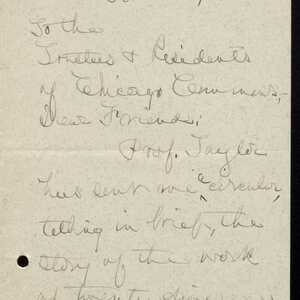 To the
Trustees & Residents
of Chicago Commons,-
Dear Friends:
Prof. Taylor
has sent me a "circular,
telling in brief, the
story of the work
of twenty